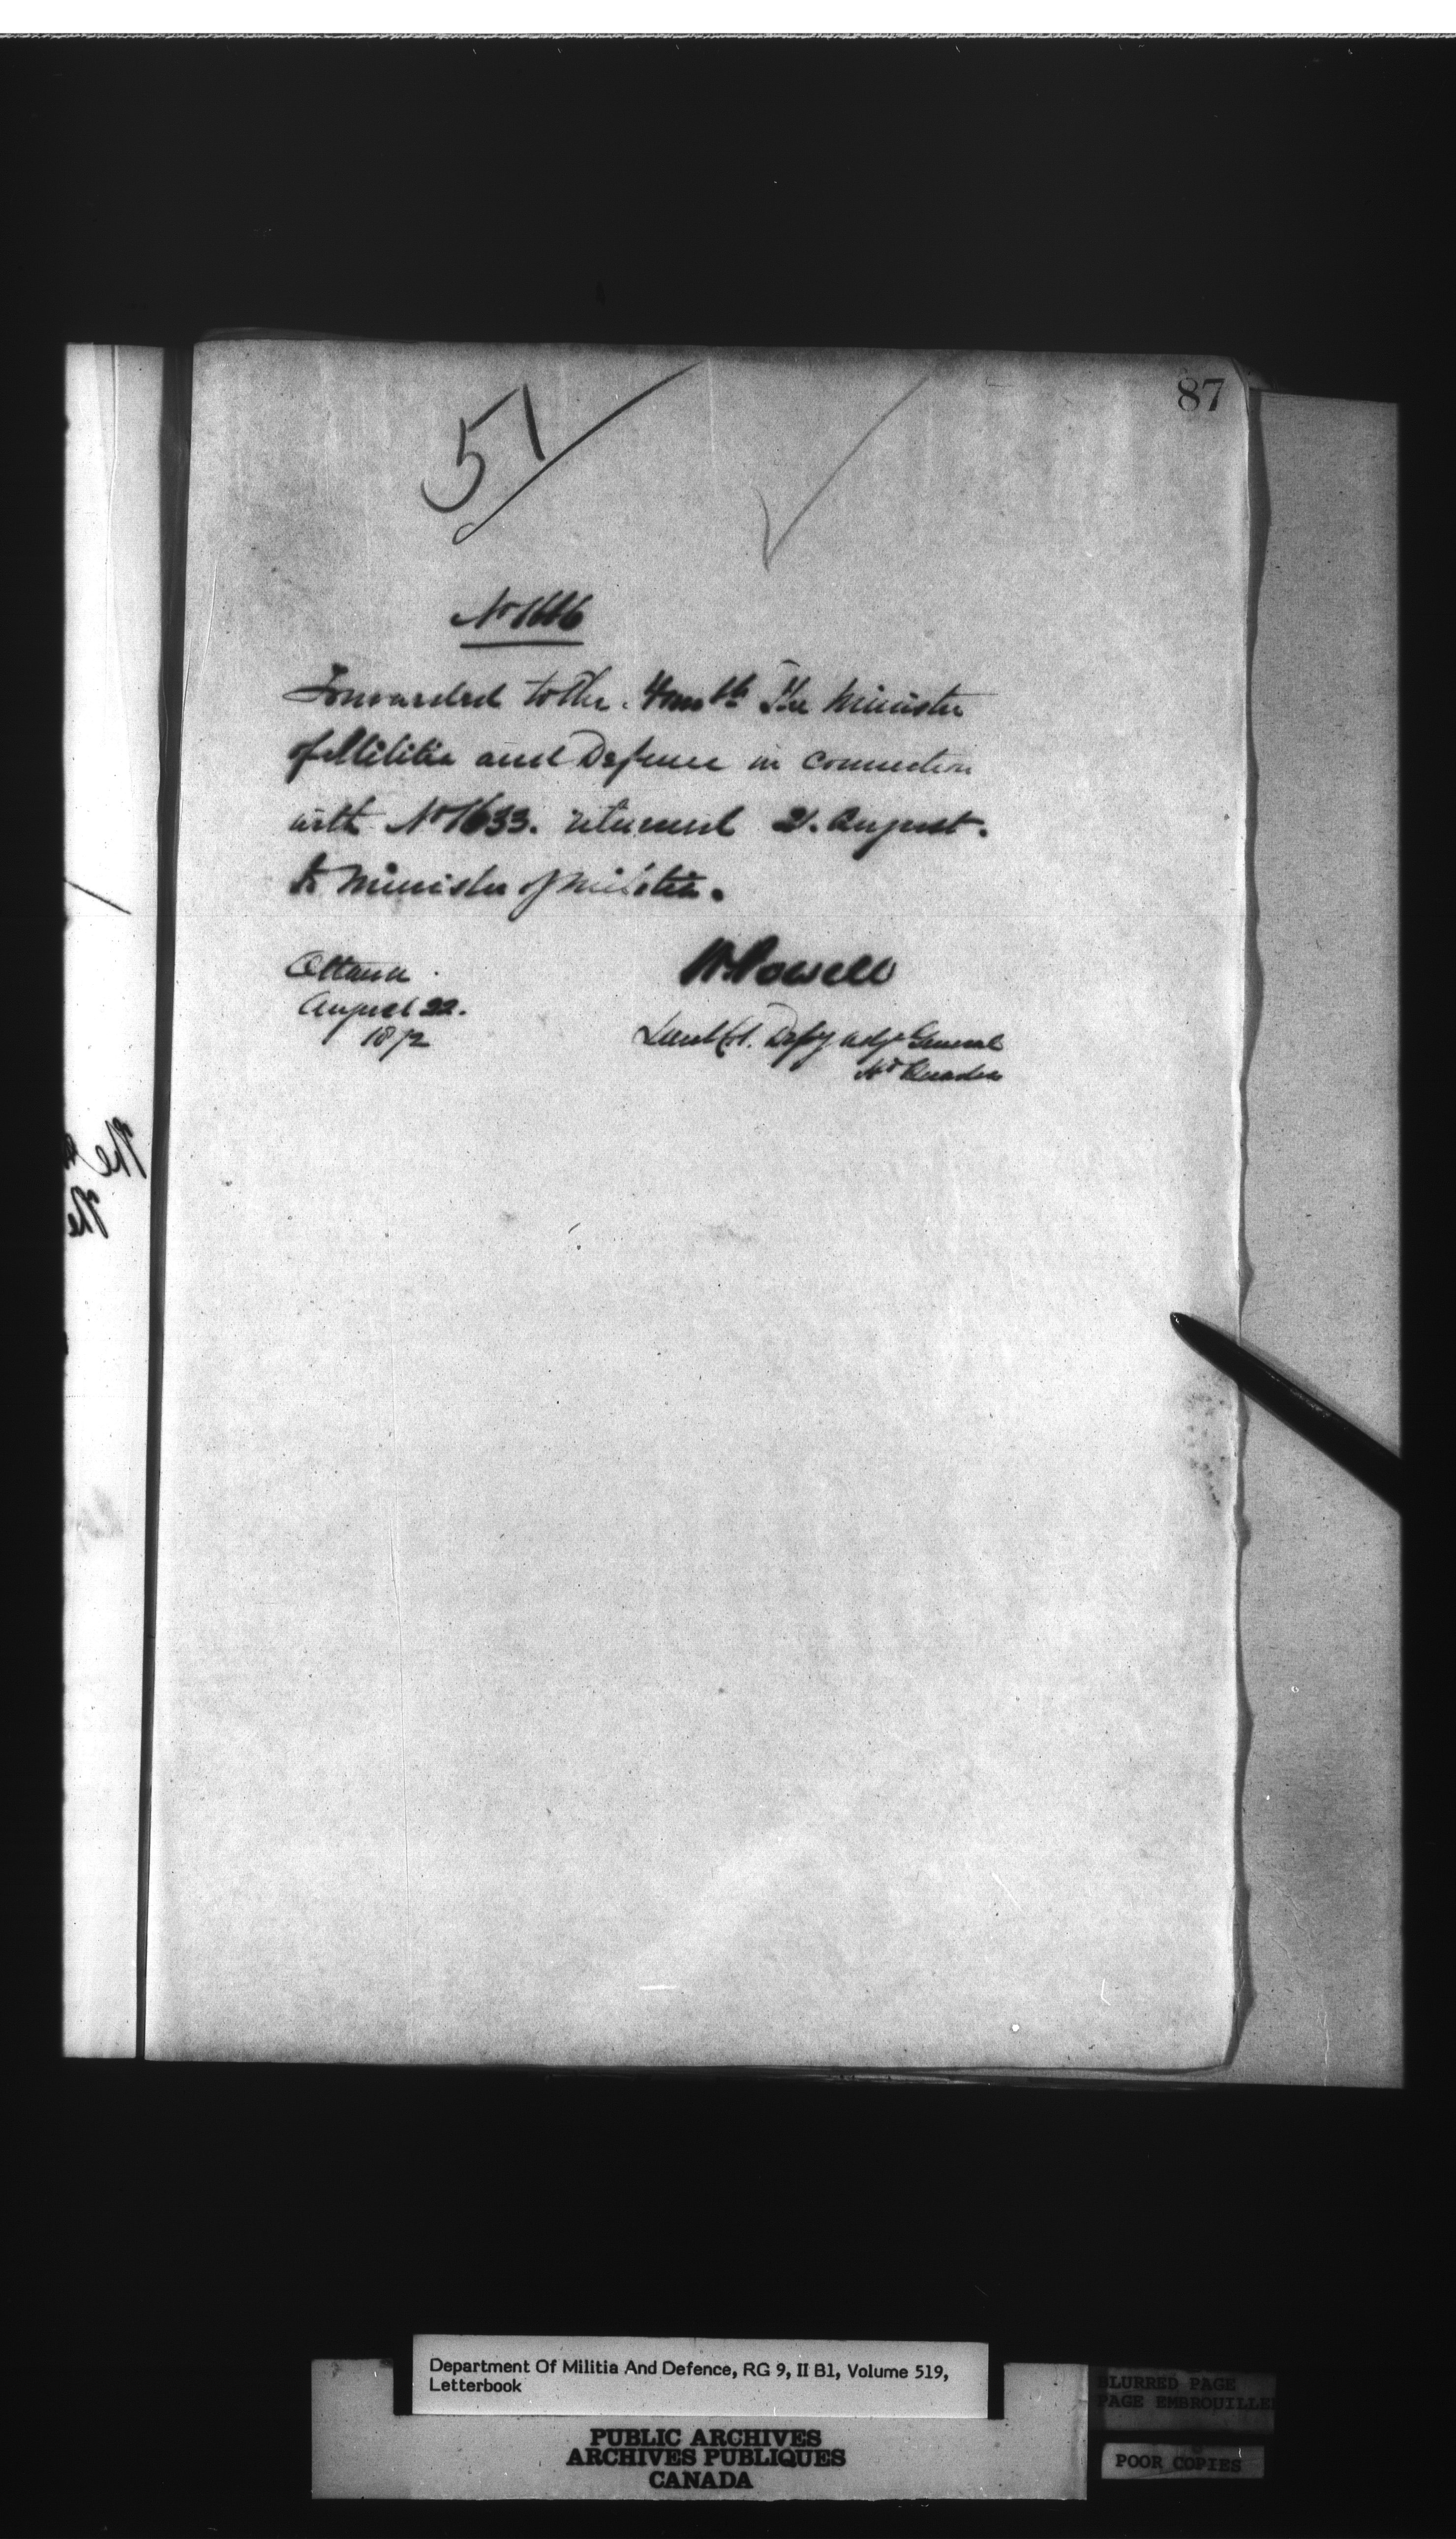 87
51
No 1646
Forwarded to the Honble The Minister
of Militia and Defence in connection
with No 1633. returned 21. August.
to Minister of Militia.
Ottawa
August 22.
1872
W. Powell
Lieut Col. Depy Adjt General
Hd Quarters
The
The
Department Of Militia And Defence, RG 9, II B1, Volume 519,
Letterbook
PUBLIC ARCHIVES
ARCHIVES PUBLIQUES
CANADA
BLURRED PAGE
PAGE EMBROUILLE
POOR COPIES